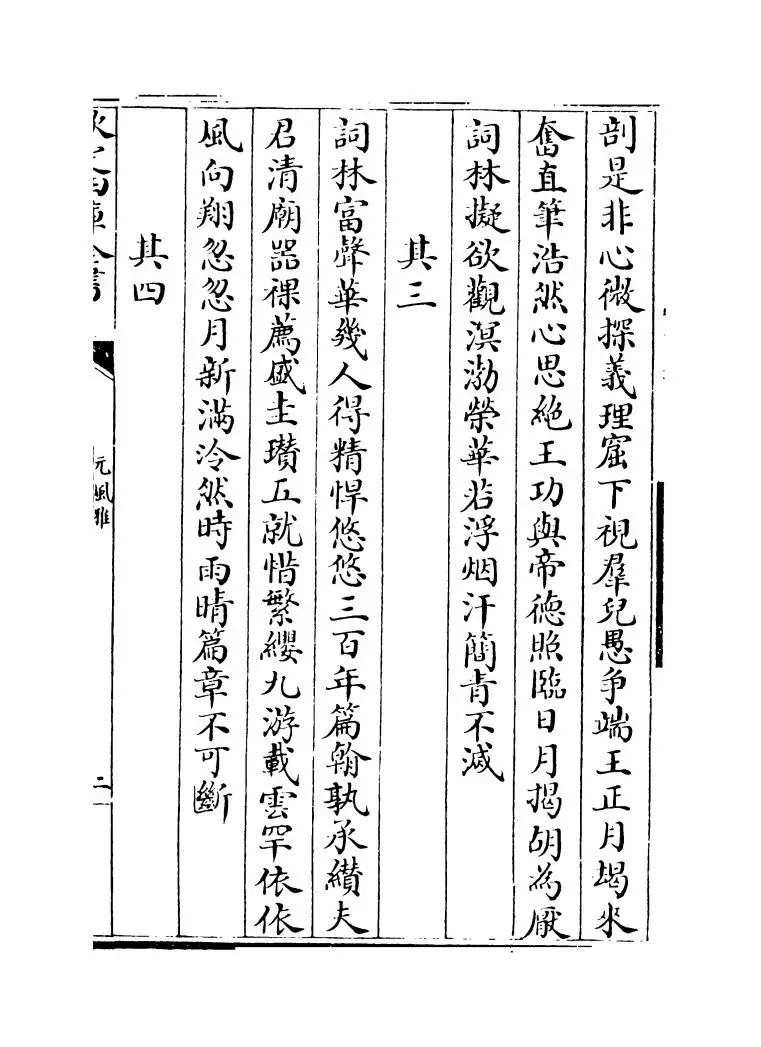 剖是非心微探義理窟下視羣兒愚争端王正月朅來
奮直筆浩然心思絶王功與帝德照臨日月揭胡為厭
詞林擬欲觀溟渤榮華若浮烟汗簡青不滅
其三
詞林富聲華幾人得精悍悠悠三百年篇翰孰承纉夫
君清廟器祼薦盛圭瓚五就惜繁纓九游載雲罕依依
風向翔忽忽月新滿泠然時雨晴篇章不可斷
其四
欽定四庫全書
元風雅
二